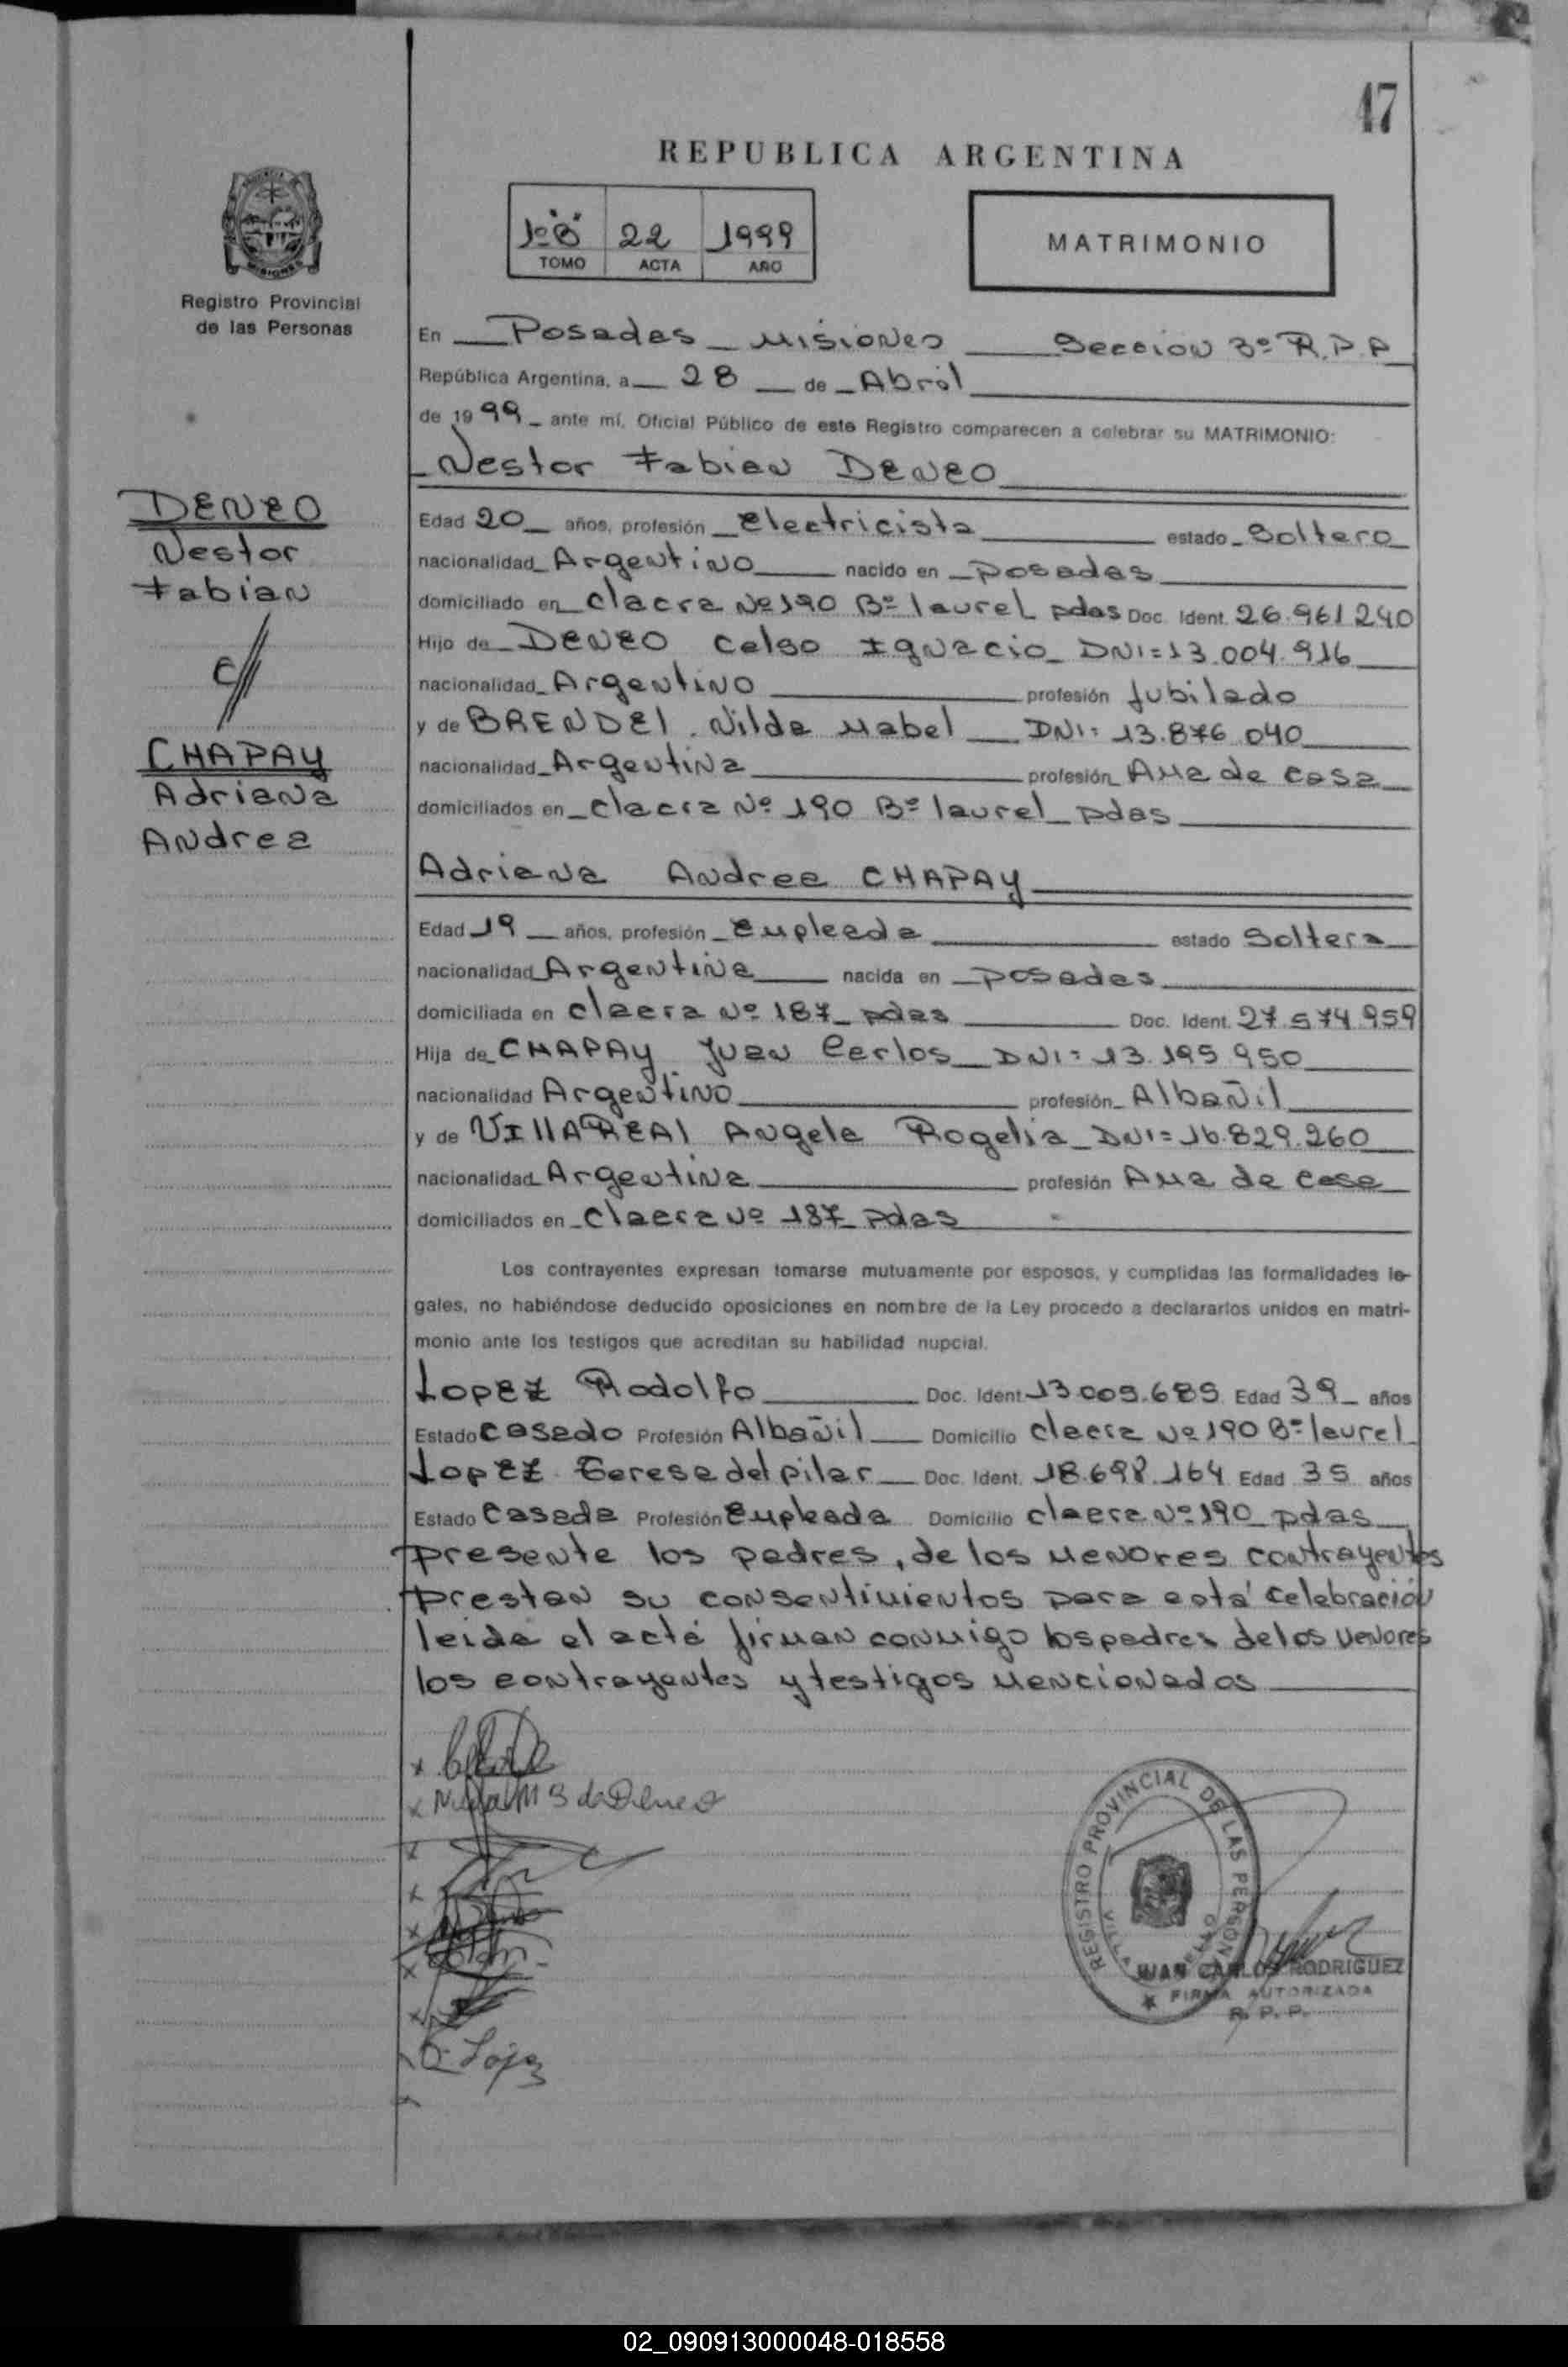 47
REPUBLICA ARGENTINA
1º "B" 22 1999
TOMO ACTA AÑO
MATRIMONIO
Registro Provincial
de las Personas
En Posadas - Misiones Seccion 3º R.P.P
República Argentina, a 28 de Abril
de 1999 ante mí, Oficial Público de este Registro comparecen a celebrar su MATRIMONIO:
Nestor Fabian DENEO
DENEO
Nestor
Fabian
c//
CHAPAY
Adriana
Andrea
Edad 20 años, profesión electricista estado Soltero
nacionalidad Argentino nacido en posadas
domiciliado en clacra Nº 190 Bº laurel pdas Doc. Ident. 26.961240
Hijo de DENEO Celso Ignacio DNI=13.004.916
nacionalidad Argentino profesión Jubilado
y de BRENDEl. Nilda Mabel DNI: 13.876.040
nacionalidad Argentina profesión Ama de casa
domiciliados en clacra Nº 190 Bº laurel pdas
Adriana Andrea CHAPAY
Edad 19 años, profesión empleada estado Soltera
nacionalidad Argentina nacida en posadas
domiciliada en clacra Nº 187 pdas Doc. Ident. 27.574.959
Hija de CHAPAY Juan Carlos DNI=13.195.950
nacionalidad Argentino profesión Albañil
y de VIllAREAl Angela Rogelia DNI=16.829.260
nacionalidad Argentina profesión Ama de casa
domiciliados en clacra Nº 187 pdas
Los contrayentes expresan tomarse mutuamente por esposos, y cumplidas las formalidades le-
gales, no habiéndose deducido oposiciones en nombre de la Ley procedo a declararlos unidos en matri-
monio ante los testigos que acreditan su habilidad nupcial.
Lopez Rodolfo Doc. Ident. 13.005.685 Edad 39 años
Estado casado Profesión Albañil Domicilio clacra Nº 190 Bº laurel
Lopez Teresa del pilar Doc. Ident. 18.698.164 Edad 35 años
Estado casada Profesión empleada Domicilio clacra Nº 190 pdas
presente los padres, de los menores contrayentes
prestan su consentimientos para está celebración
leida el acta firman conmigo los padres de los menores
los contrayentes y testigos mencionados
Nilda M B de Deneo
Lopez
REGISTRO PROVINCIAL DE LAS PERSONAS
JUAN CARLOS RODRIGUEZ
FIRMA AUTORIZADA
R. P. P.
02_090913000048-018558